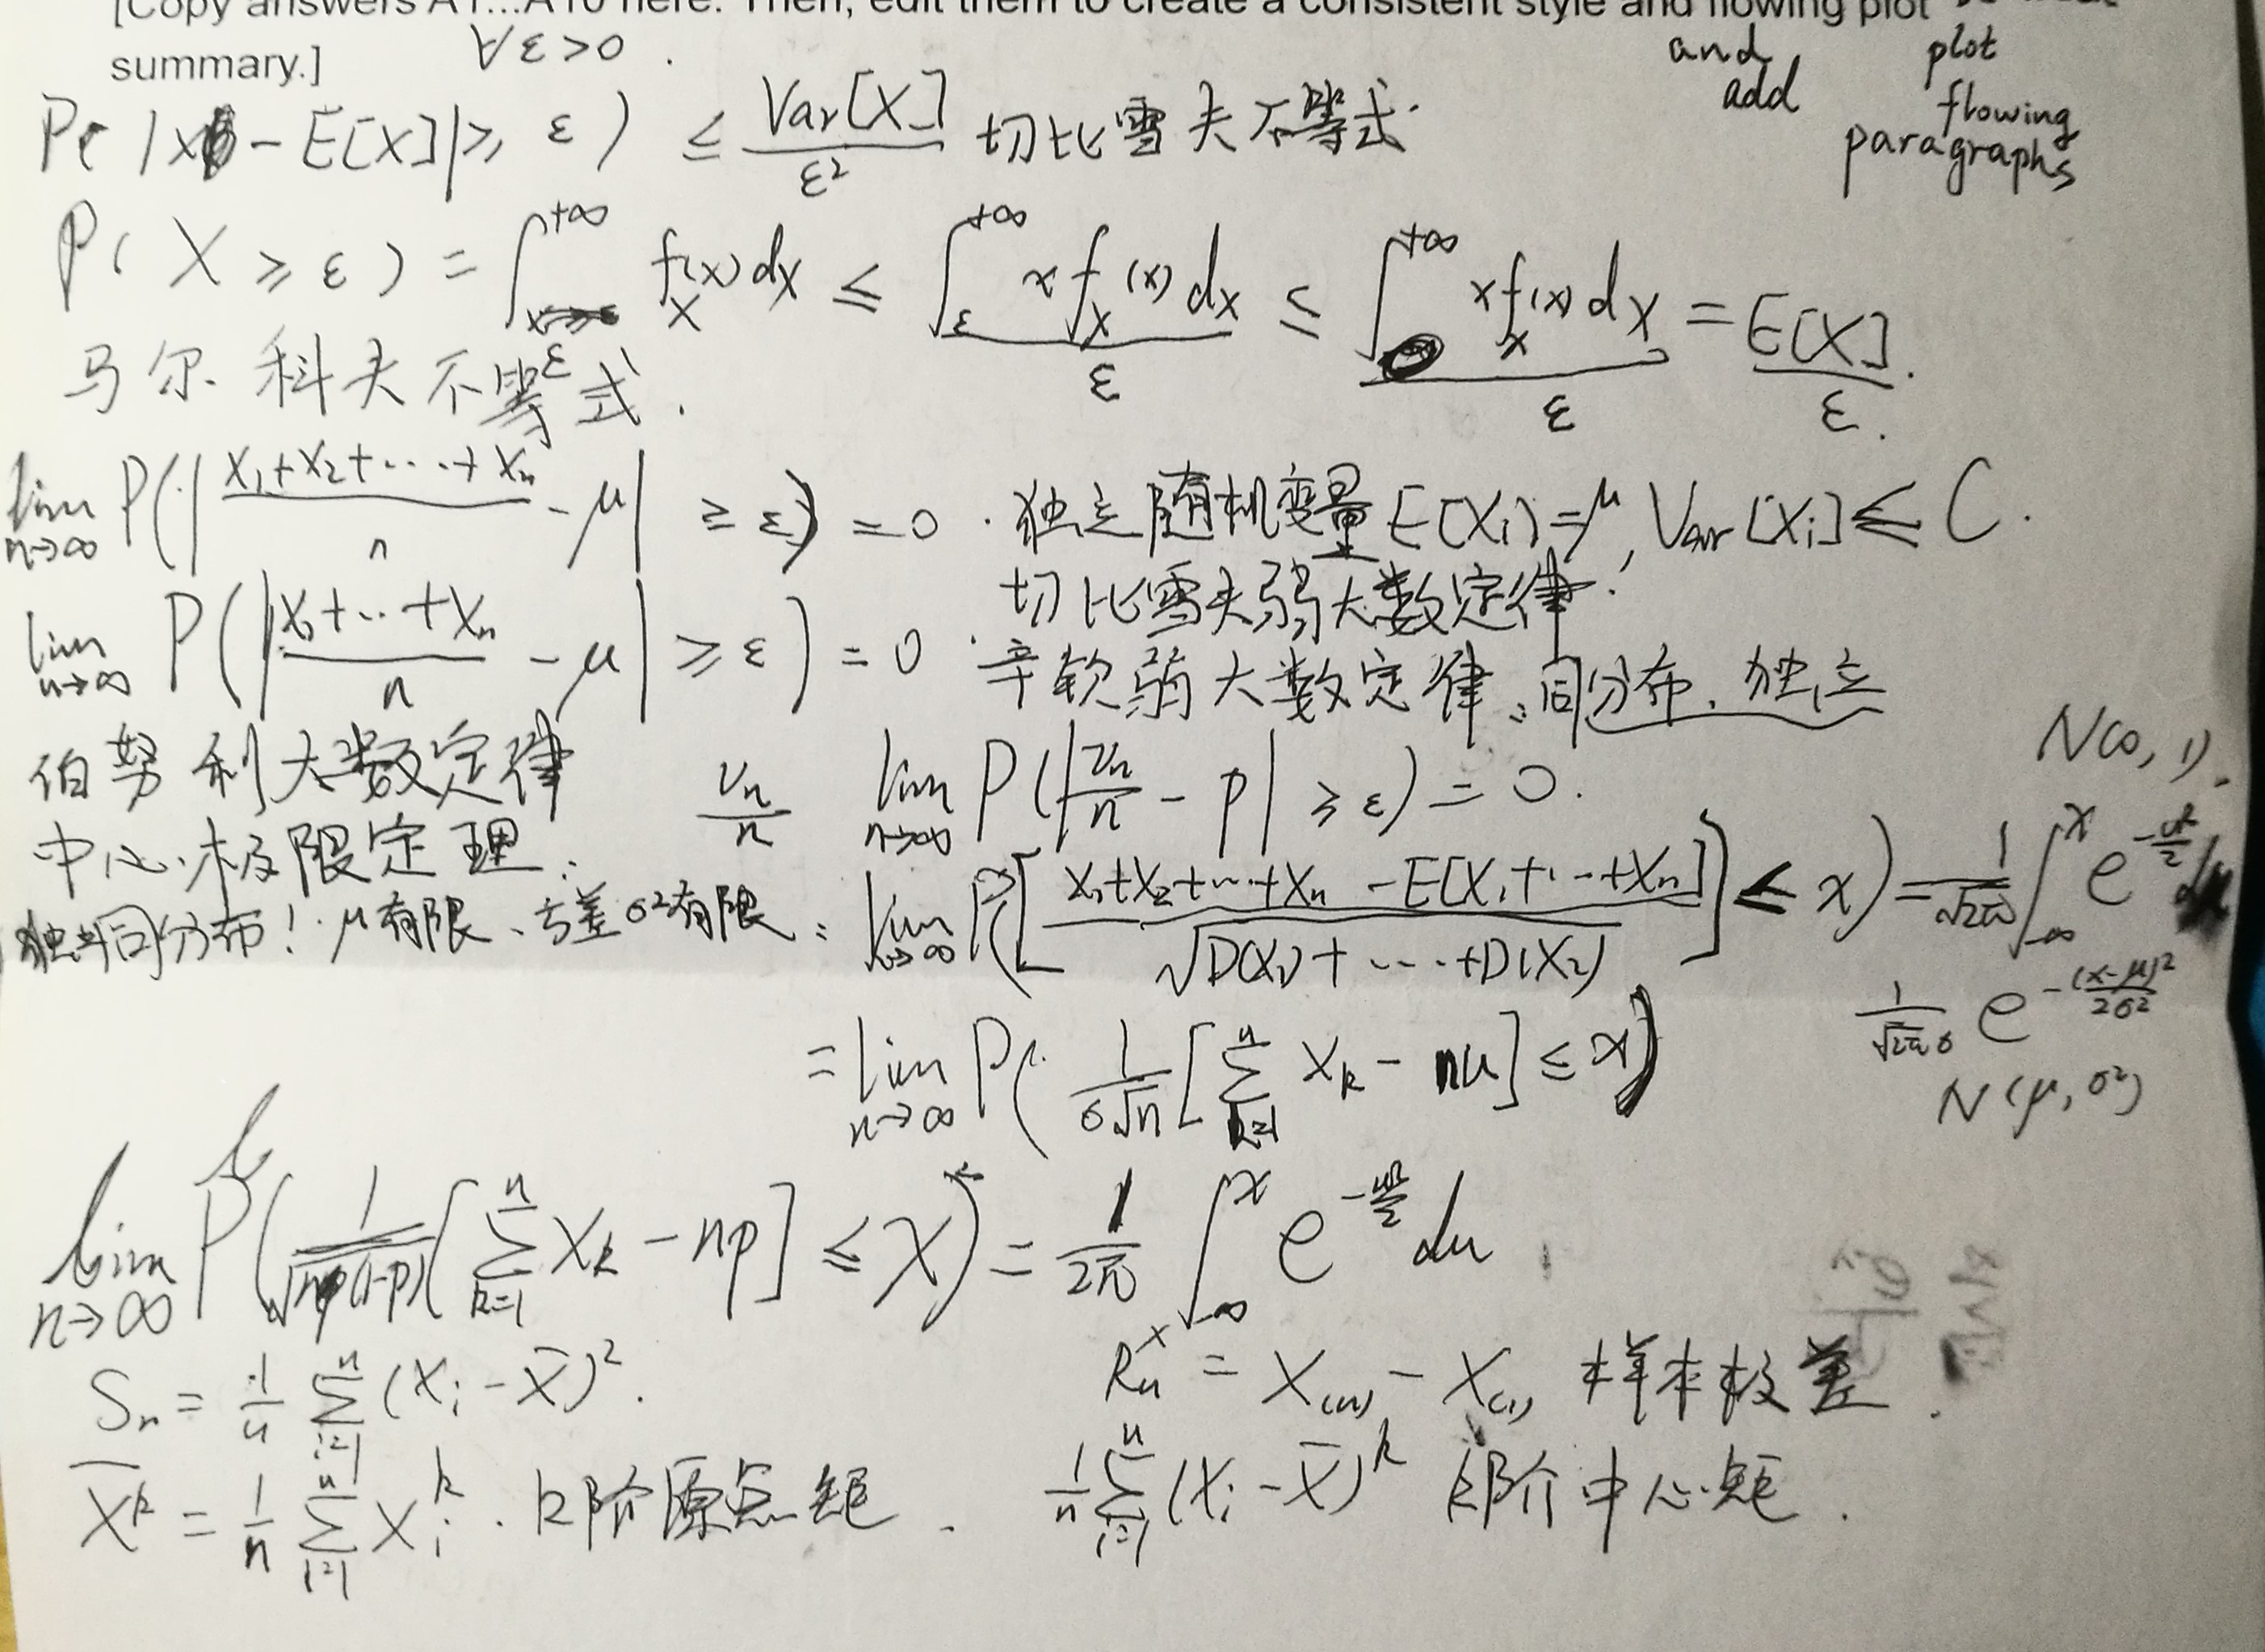 [Copy answers A1...A10 here. Then, edit them to create a consistent style and flowing plot
summary.]
and plot
add flowing
paragraphs
∀ε>0.
P(|X-E[X]|≥ε) ≤ Var[X]/ε² 切比雪夫不等式.
P(X≥ε) = ∫_ε^{+∞} f_X(x)dx ≤ ∫_ε^{+∞} x f_X(x)dx / ε ≤ ∫_0^{+∞} x f_X(x)dx / ε = E[X]/ε.
马尔科夫不等式.
lim_{n→∞} P(|(X₁+X₂+⋯+Xₙ)/n - μ| ≥ ε) = 0. 独立随机变量 E(Xi)=μ, Var[Xi]≤C.
切比雪夫弱大数定律!
lim_{n→∞} P(|(X₁+⋯+Xₙ)/n - μ| ≥ ε) = 0. 辛钦弱大数定律:同分布、独立
伯努利大数定律 νₙ/n lim_{n→∞} P(|νₙ/n - p| ≥ ε) = 0.
N(0,1).
中心极限定理:
独立同分布! μ有限、方差σ²有限: lim_{n→∞} P([(X₁+X₂+⋯+Xₙ - E[X₁+⋯+Xₙ])/√(D(X₁)+⋯+D(X₂))] ≤ x) = 1/√2π ∫_{-∞}^x e^{-u²/2} du
= lim_{n→∞} P(1/(σ√n) [∑_{k=1}^n X_k - nμ] ≤ x)
1/(√2π σ) e^{-(x-μ)²/2σ²}
N(μ,σ²)
lim_{n→∞} P(1/√(np(1-p)) [∑_{k=1}^n X_k - np] ≤ x) = 1/2π ∫_{-∞}^x e^{-u²/2} du
Sₙ = 1/n ∑_{i=1}^n (Xi - X̄)². Rₙ = X_(n) - X_(1) 样本极差.
X̄ᵏ = 1/n ∑_{i=1}^n Xiᵏ. k阶原点矩. 1/n ∑_{i=1}^n (Xi - X̄)ᵏ k阶中心矩.